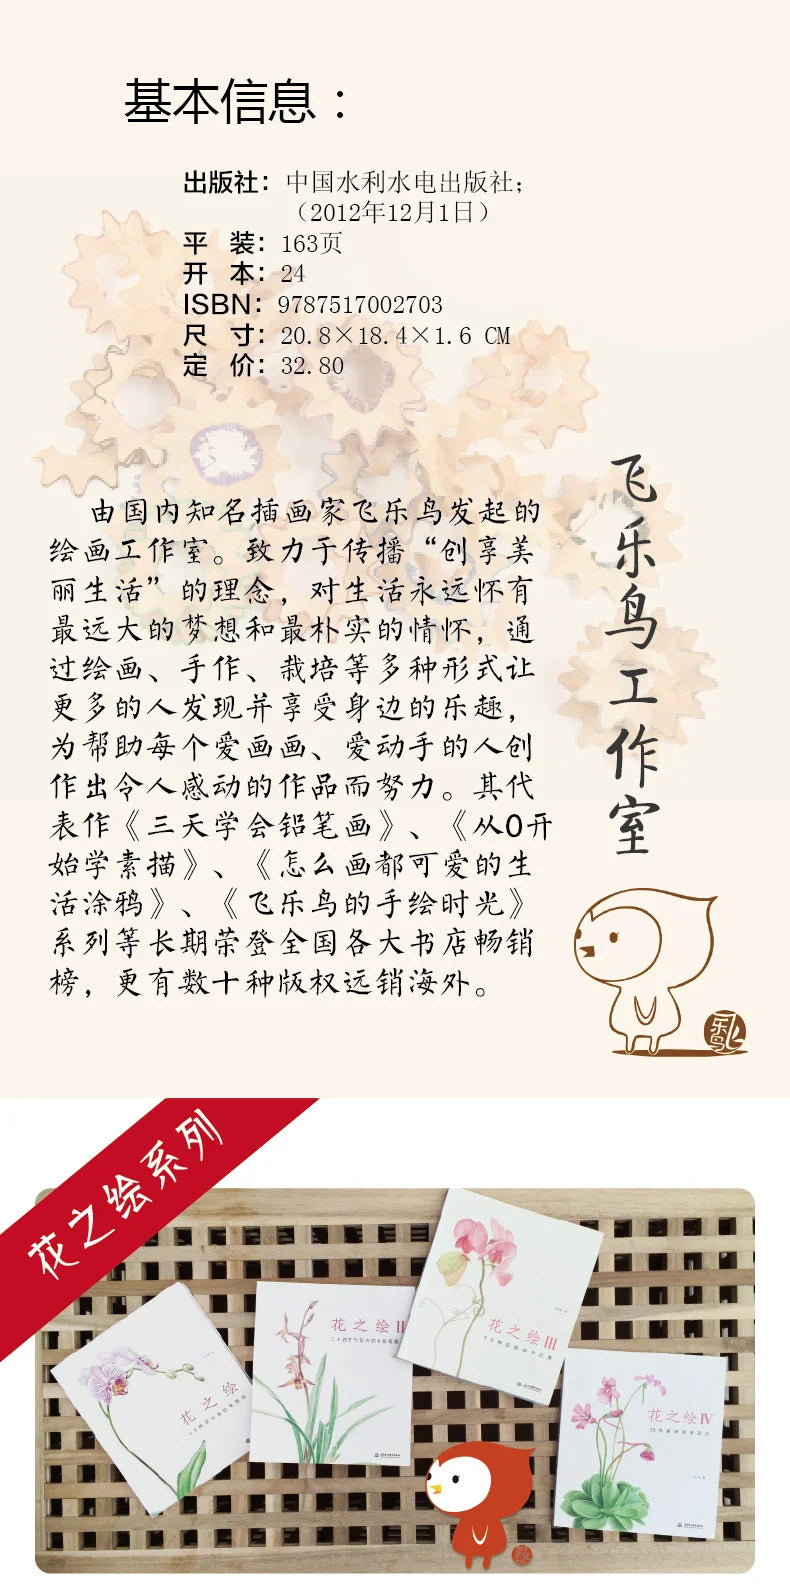 基本信息：
出版社：中国水利水电出版社；
（2012年12月1日）
平 装：163页
开 本：24
ISBN：9787517002703
尺 寸：20.8×18.4×1.6 CM
定 价：32.80
飞乐鸟工作室
由国内知名插画家飞乐鸟发起的
绘画工作室。致力于传播“创享美
丽生活”的理念，对生活永远怀有
最远大的梦想和最朴实的情怀，通
过绘画、手作、栽培等多种形式让
更多的人发现并享受身边的乐趣，
为帮助每个爱画画、爱动手的人创
作出令人感动的作品而努力。其代
表作《三天学会铅笔画》、《从0开
始学素描》、《怎么画都可爱的生
活涂鸦》、《飞乐鸟的手绘时光》
系列等长期荣登全国各大书店畅销
榜，更有数十种版权远销海外。
飞乐鸟
花之绘系列
花之绘
花之绘II
花之绘III
花之绘IV